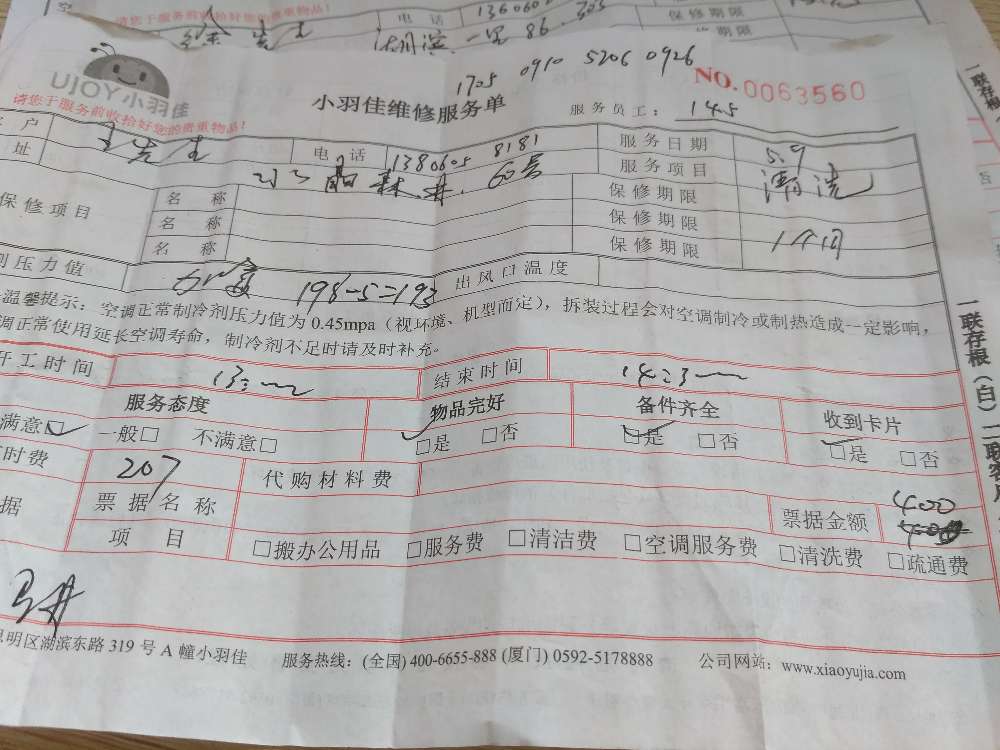 电 话 1360600
保修期限
请您于服务前收拾好您的贵重物品!
86. 303
保修期限
1705 0910 5206 0926
UJOY小羽佳
NO.0063560
请您于服务前收拾好您的贵重物品!
小羽佳维修服务单
服务员工: 145
户 王先生 电 话 1380605 8181 服务日期 5.9
址 60号 服务项目 清洗
保修项目 名 称 保修期限
名 称 保修期限
名 称 保修期限 1个月
剂压力值 198-5=193 出风口温度
温馨提示: 空调正常制冷剂压力值为 0.45mpa (视环境、机型而定), 拆装过程会对空调制冷或制热造成一定影响,
调正常使用延长空调寿命, 制冷剂不足时请及时补充。
开工时间 13: 结束时间 14:3
服务态度 物品完好 备件齐全 收到卡片
满意□ 一般□ 不满意□ □是 □否 □是 □否 □是 □否
时费 207 代购材料费
据 票据名称 票据金额 400
项 目 □搬办公用品 □服务费 □清洁费 □空调服务费 □清洗费 □疏通费
明区湖滨东路 319 号 A 幢小羽佳 服务热线: (全国) 400-6655-888 (厦门) 0592-5178888 公司网站: www.xiaoyujia.com
一联存根(白)二联客
一联存根